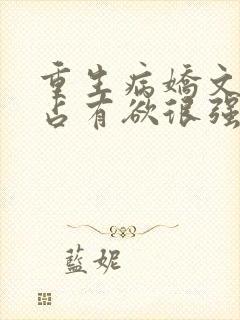 重生病嬌文
占有欲很强
藍妮